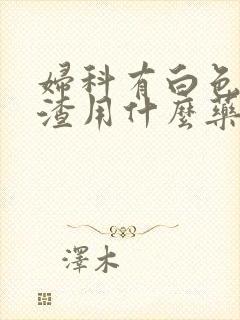 婦科有白色
渣用什麼藥
澤木